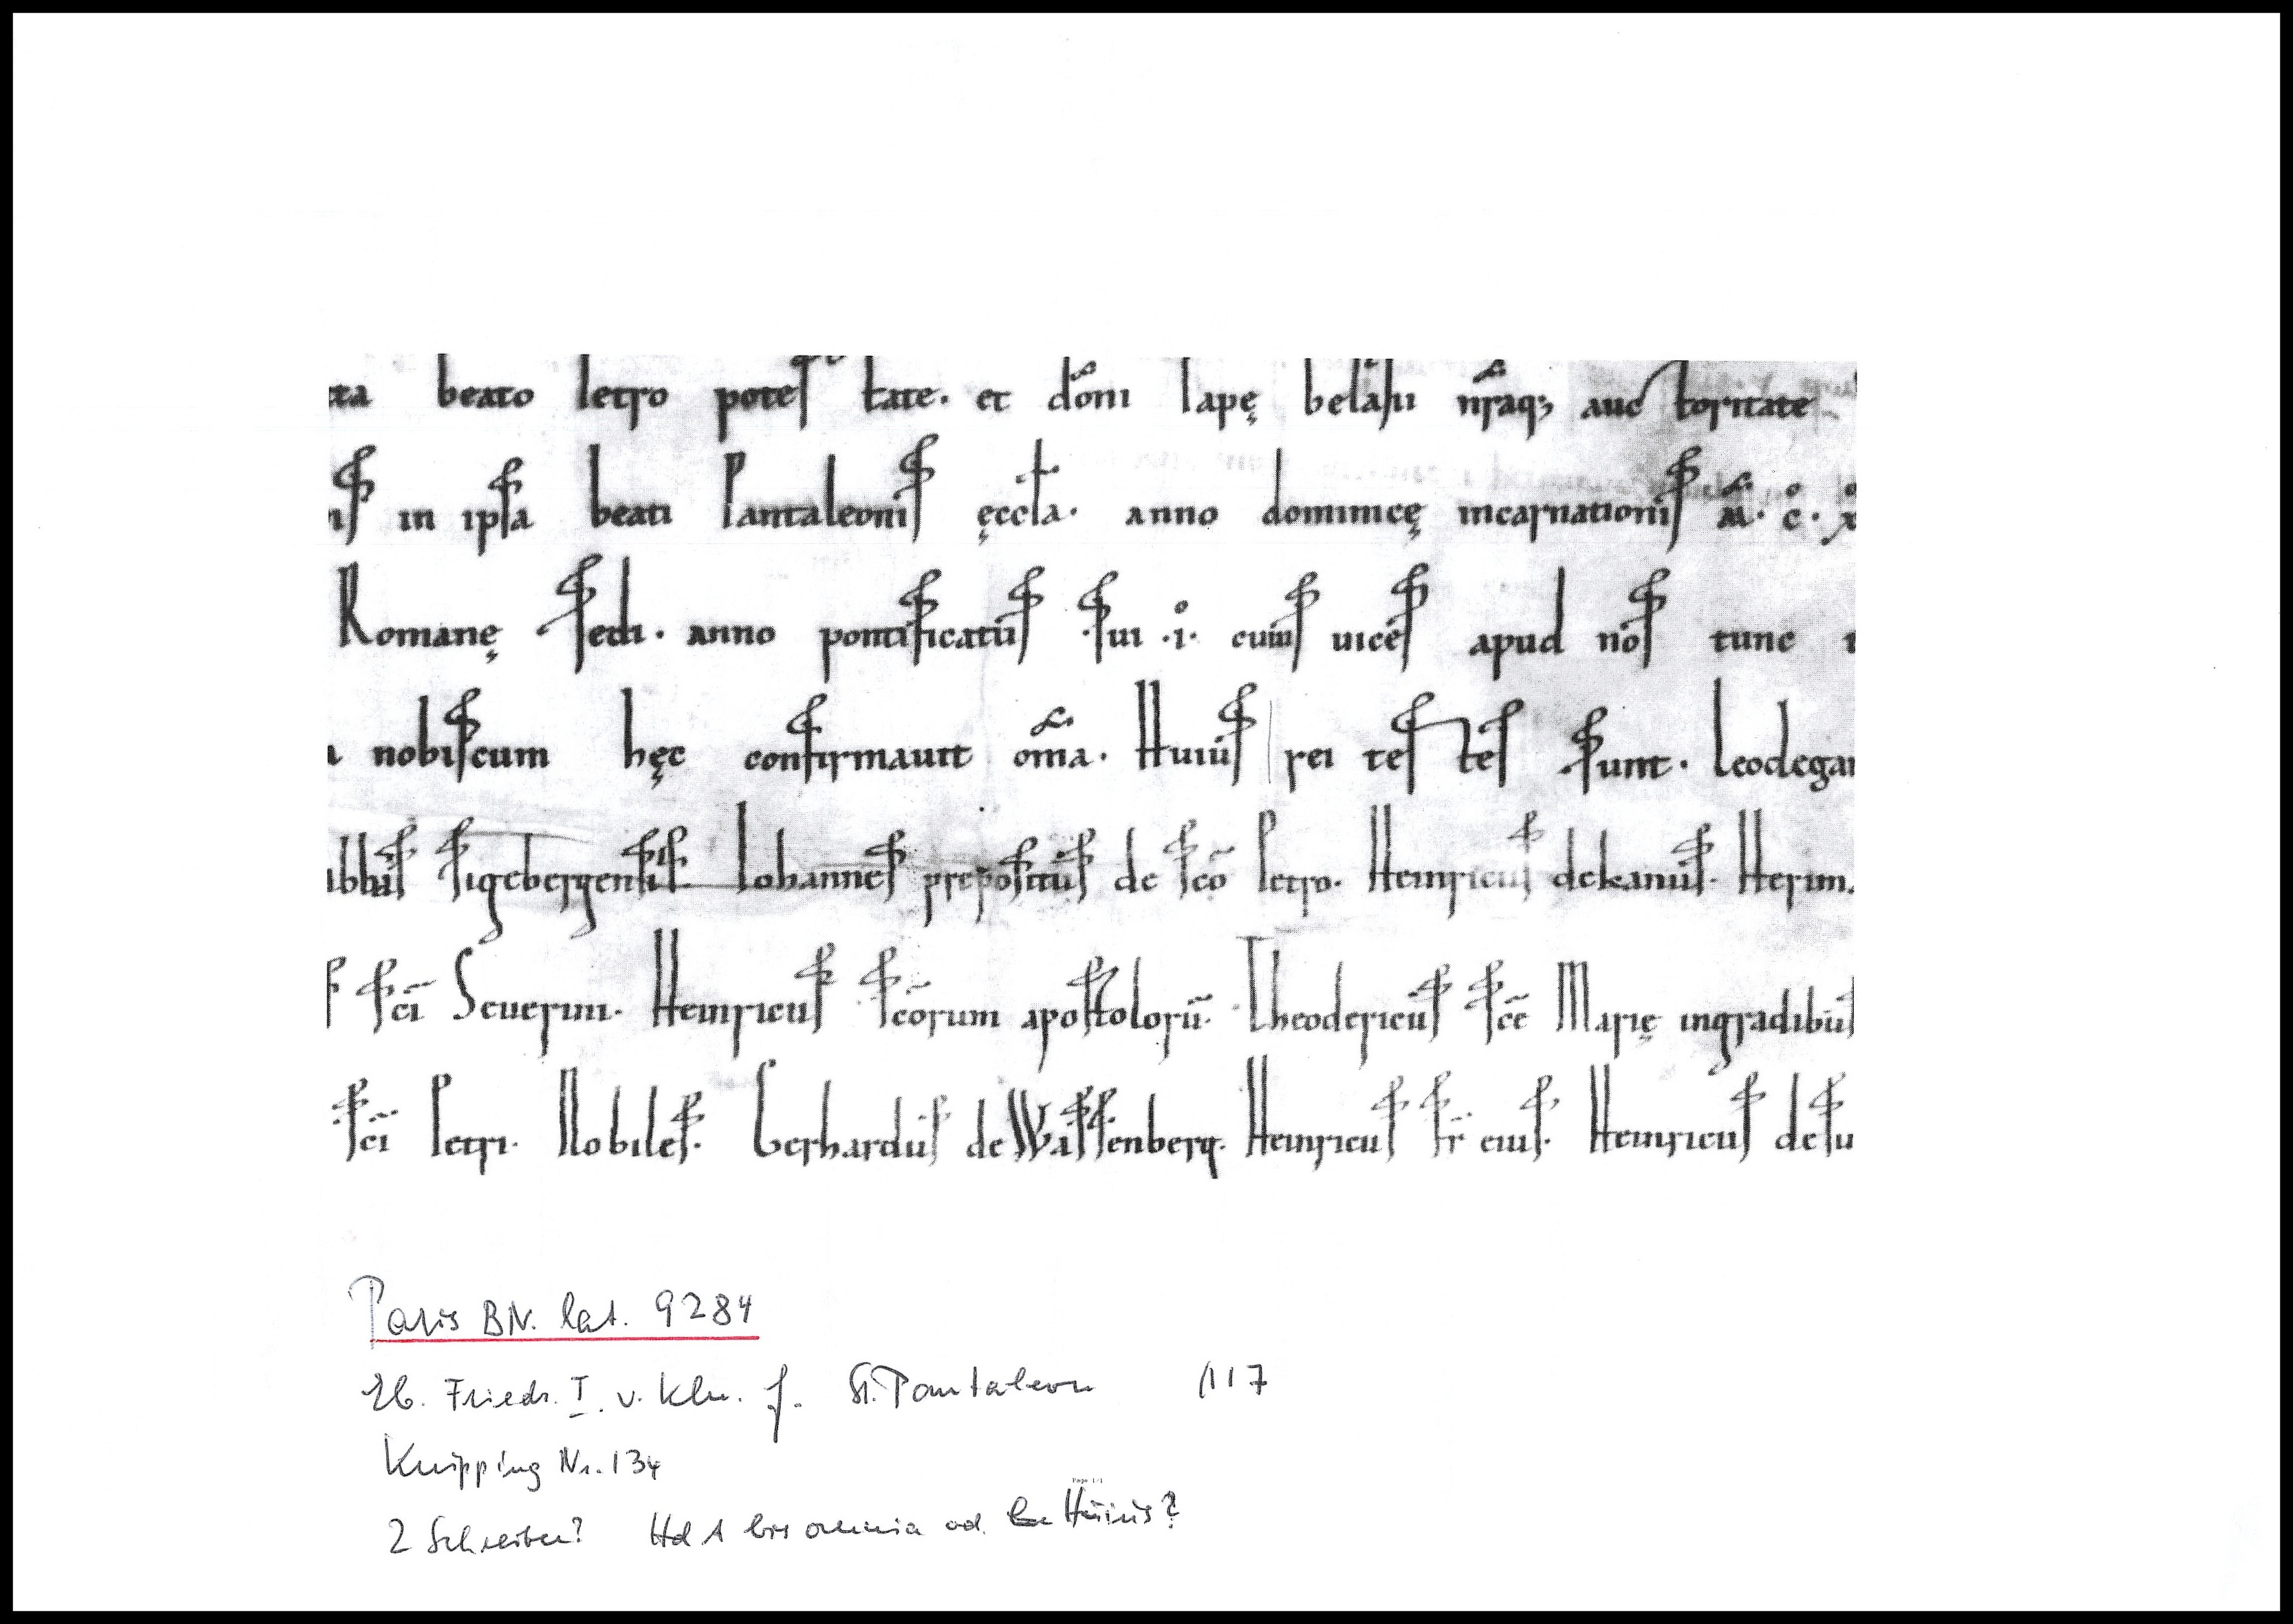 ta beato Petro potestate. et dom̄ Papę Gelasii nr̄aq; auctoritate
is in ipsa beati Pantaleonis ęccła. anno dominicę incarnationis M̊. c̊. x̊
Romanę sedi. anno pontificatus sui .i. cuius uices apud nos tunc
nobiscum hęc confirmauit om̄a. Huius rei testes sunt. Leodegar
abbas Sigebergensis Iohannes prepositus de sc̄o Petro. Heinricus dekanus. Herim.
s sc̄i Seuerini. Heinricus sc̄orum apostolorū. Theodericus sc̄e Marię ingradibus
sc̄i Petri. Nobiles. Gerhardus de Wassenberg. Heinricus fr̄ eius. Heinricus de su
Paris BN. lat. 9284
Eb. Friedr. I. v. Kln. f. St. Pantaleon 1117
Knipping Nr. 134
Page 1/1
2 Schreiber? Hd A bis omnia od. Huius?